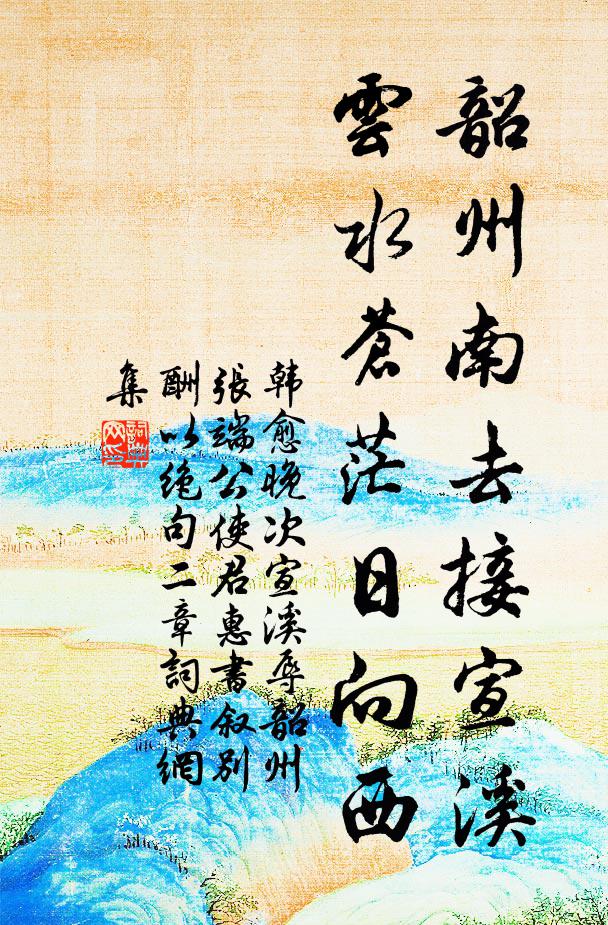 韶州南去接宣溪
雲水蒼茫日向西
韓愈晚次宣溪辱韶州
張端公使君惠書叙別
酬以绝句二章詞典網
集